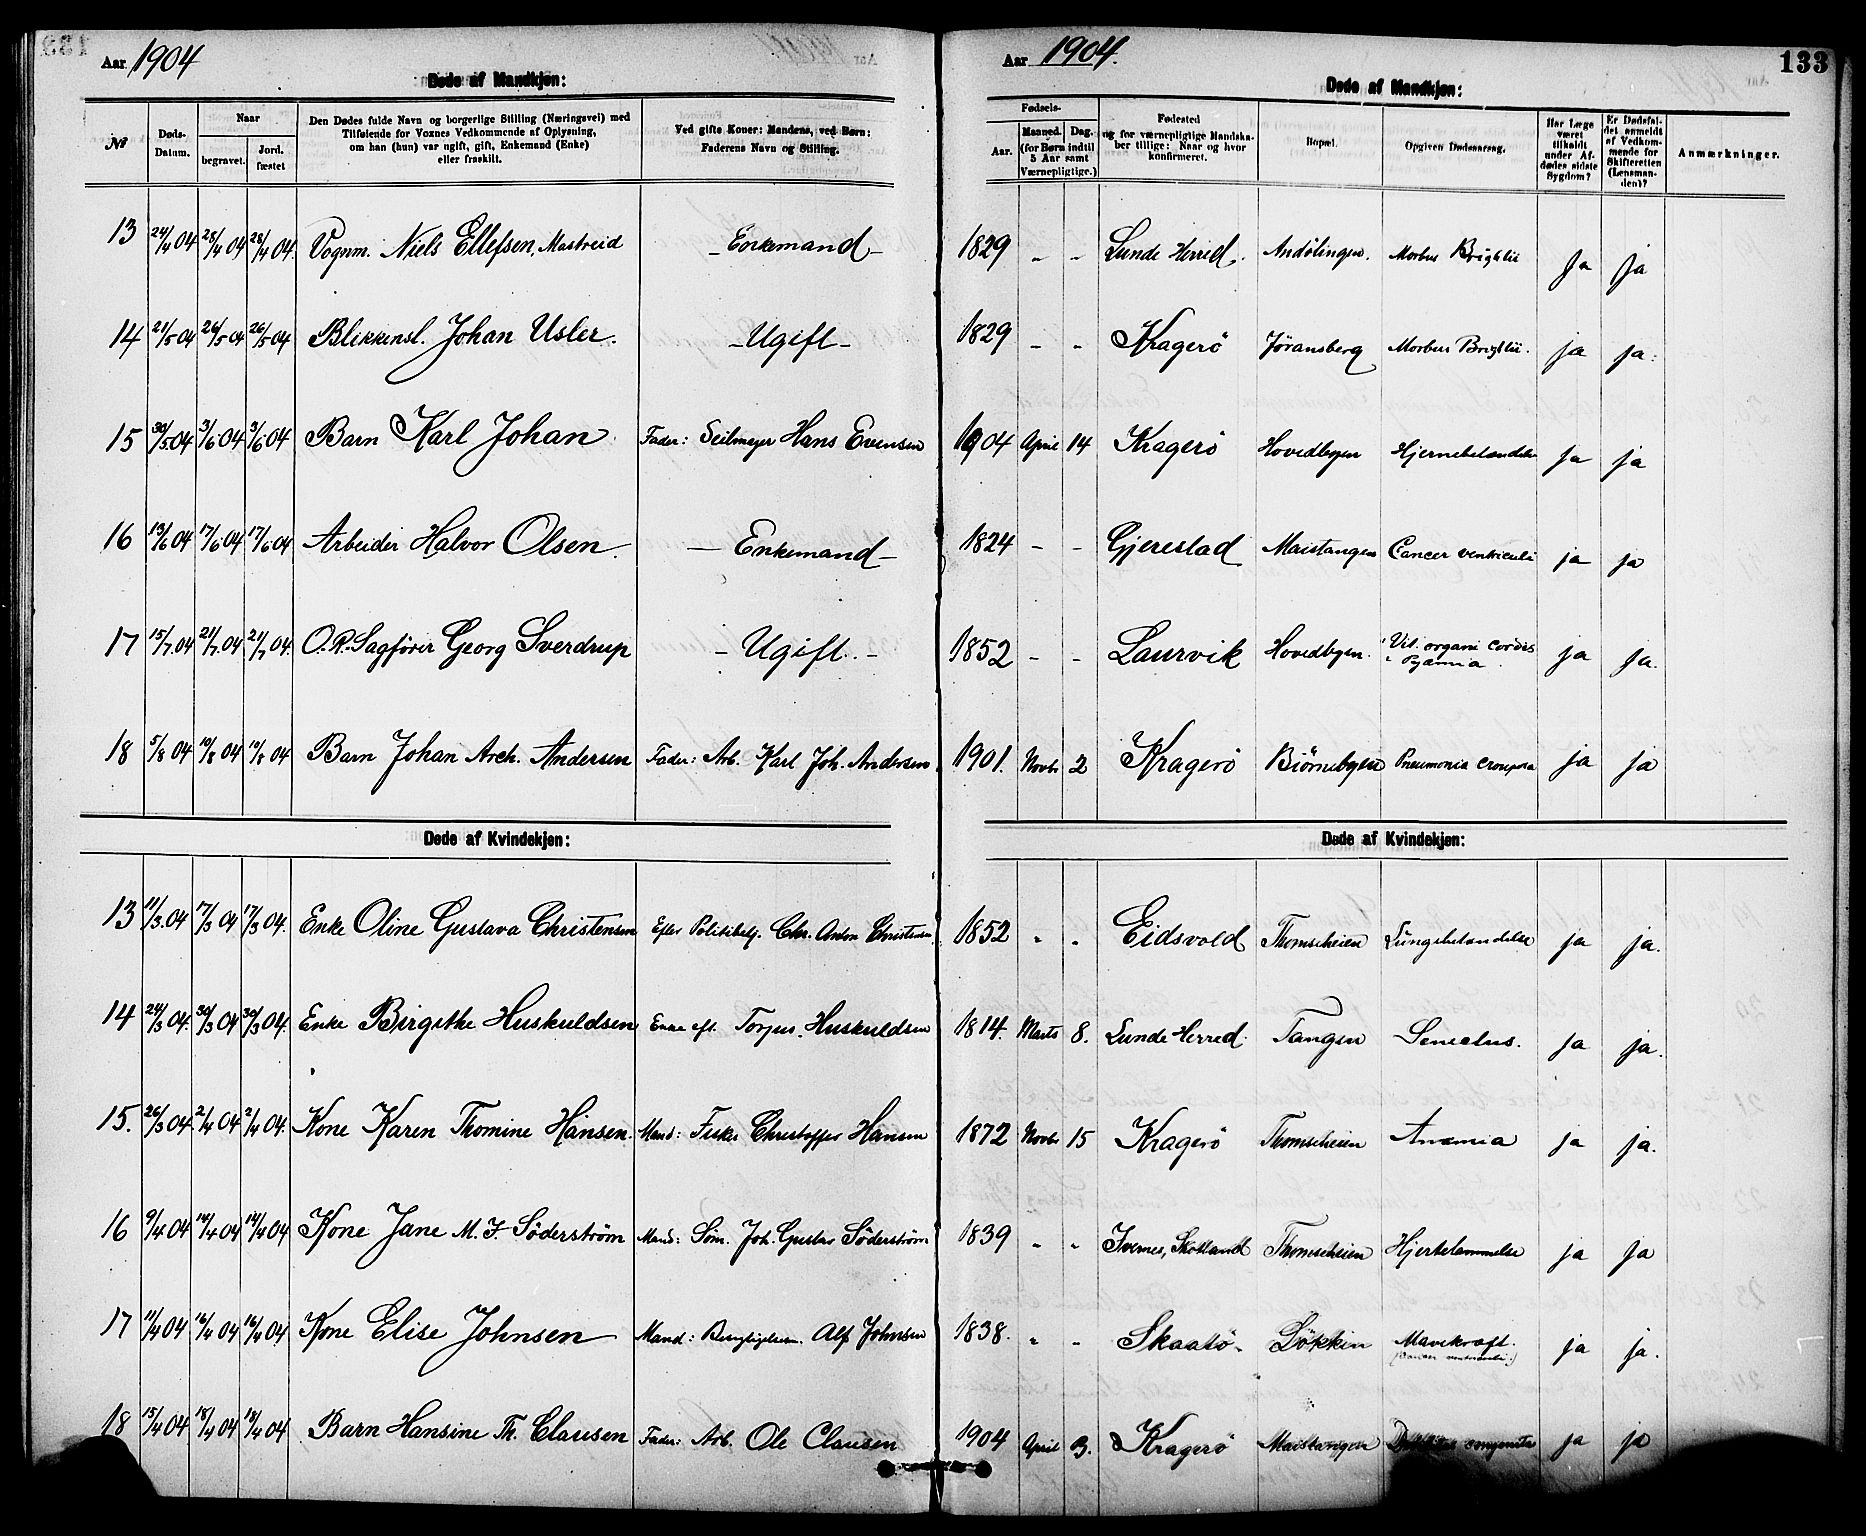 Aar 1904
Døde af Mandkjøn:
№
Døds-Datum.
Naar
begravet.
Jord.fæstet
Den Dødes fulde Navn og borgerlige Stilling (Næringsvei) med
Tilføiende for Voxnes Vedkommende af Oplysning,
om han (hun) var ugift, gift, Enkemand (Enke)
eller fraskilt.
Ved gifte Koner: Mandens, ved Børn:
Faderens Navn og Stilling.
13 24/4 04 28/4 04 28/4 04. Vognm. Niels Ellefsen, Mastreid - Enkemand -
14 21/5 04 26/5 04 26/5 04 Blikkensl. Johan Usler. - Ugift -
15 30/5 04 3/6 04 3/6 04 Barn Karl Johan Fader: Seilmager Hans Evensen
16 13/6 04 17/6 04 17/6 04 Arbeider Halvor Olsen. - Enkemand -
17 15/7 04 21/7 04 21/7 04. O.R.Sagfører Georg Sverdrup - Ugift. -
18 5/8 04 10/8 04 10/8 04 Barn Johan Arch. Andersen Fader: Arb. Karl Joh. Andersen
Døde af Kvindekjøn:
13 11/3 04 17/3 04 17/3 04. Enke Oline Gustava Christensen Efter Politibetj. Chr. Anton Christensen
14 24/3 04. 30/3 04 30/3 04. Enke Birgithe Huskuldsen Enke eft. Torjus Huskuldsen
15. 26/3 04. 2/4 04 2/4 04. Kone Karen Thomine Hansen. Mand: Fisker Christoffer Hansen
16 9/4 04 14/4 04 14/4 04 Kone Jane M. F. Söderström Mand: Søm. Joh. Gustav Söderström
17 11/4 04 16/4 04 16/4 04 Kone Elise Johnsen Mand: Alf Johnsen
18 15/4 04 18/4 04 18/4 04 Barn Hansine Th. Clausen Fader: Arb. Ole Clausen
Aar 1904.
133
Døde af Mandkjøn:
Fødsels-
Aar.
Maaned. Dag.
(for Børn indtil
5 Aar samt
Værnepligtige.)
Fødested
og for værnepligtige Mandska-
ber tillige: Naar og hvor
konfirmeret.
Bopæl.
Opgiven Dødsaarsag.
Har Læge
været
tilkaldt
under Af-
dødes sidste
Sygdom?
Er Dødsfal-
det anmeldt
af Vedkom-
mende for
Skifteretten
(Lensman-
den)?
Anmærkninger.
1829 - - Lunde Herred. Andølingen. Morbus Brightii Ja ja
1829 - - Kragerö Jøransberg Morbus Brightii. ja ja.
1904 April 14 Kragerö Hovedbyen Hjernebetændelse ja ja
1824 - - Gjerestad Maistangen Cancer ventriculi ja ja
1852 - - Laurvik Hovedbyen. Vit. organi cordis
Pyæmia. ja ja.
1901. Novbr 2 Kragerö Biörnebyen Pneumonia crouposa ja ja
Døde af Kvindekjøn:
1852 " " Eidsvold Thomseheien Lungebetændelse ja ja.
1814. Marts 8. Lunde Herred. Tangen Senectus. ja ja.
1872 Novbr 15 Kragerö Thomseheien Anæmia ja ja.
1839 " " Ivernes, Skotland Thomseheien Hjertelammelse ja ja
1838. " - Skaatö. Lökken Mavekræft.
(Cancer ventriculi.) ja ja.
1904 April 3. Kragerö Maistangen congenita ja ja